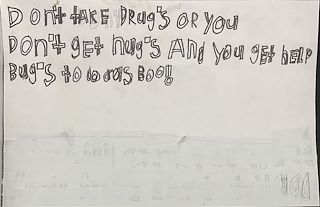 Don't take Drug's or you
Don't get hug's And you get help
Bug's to do
Boo!